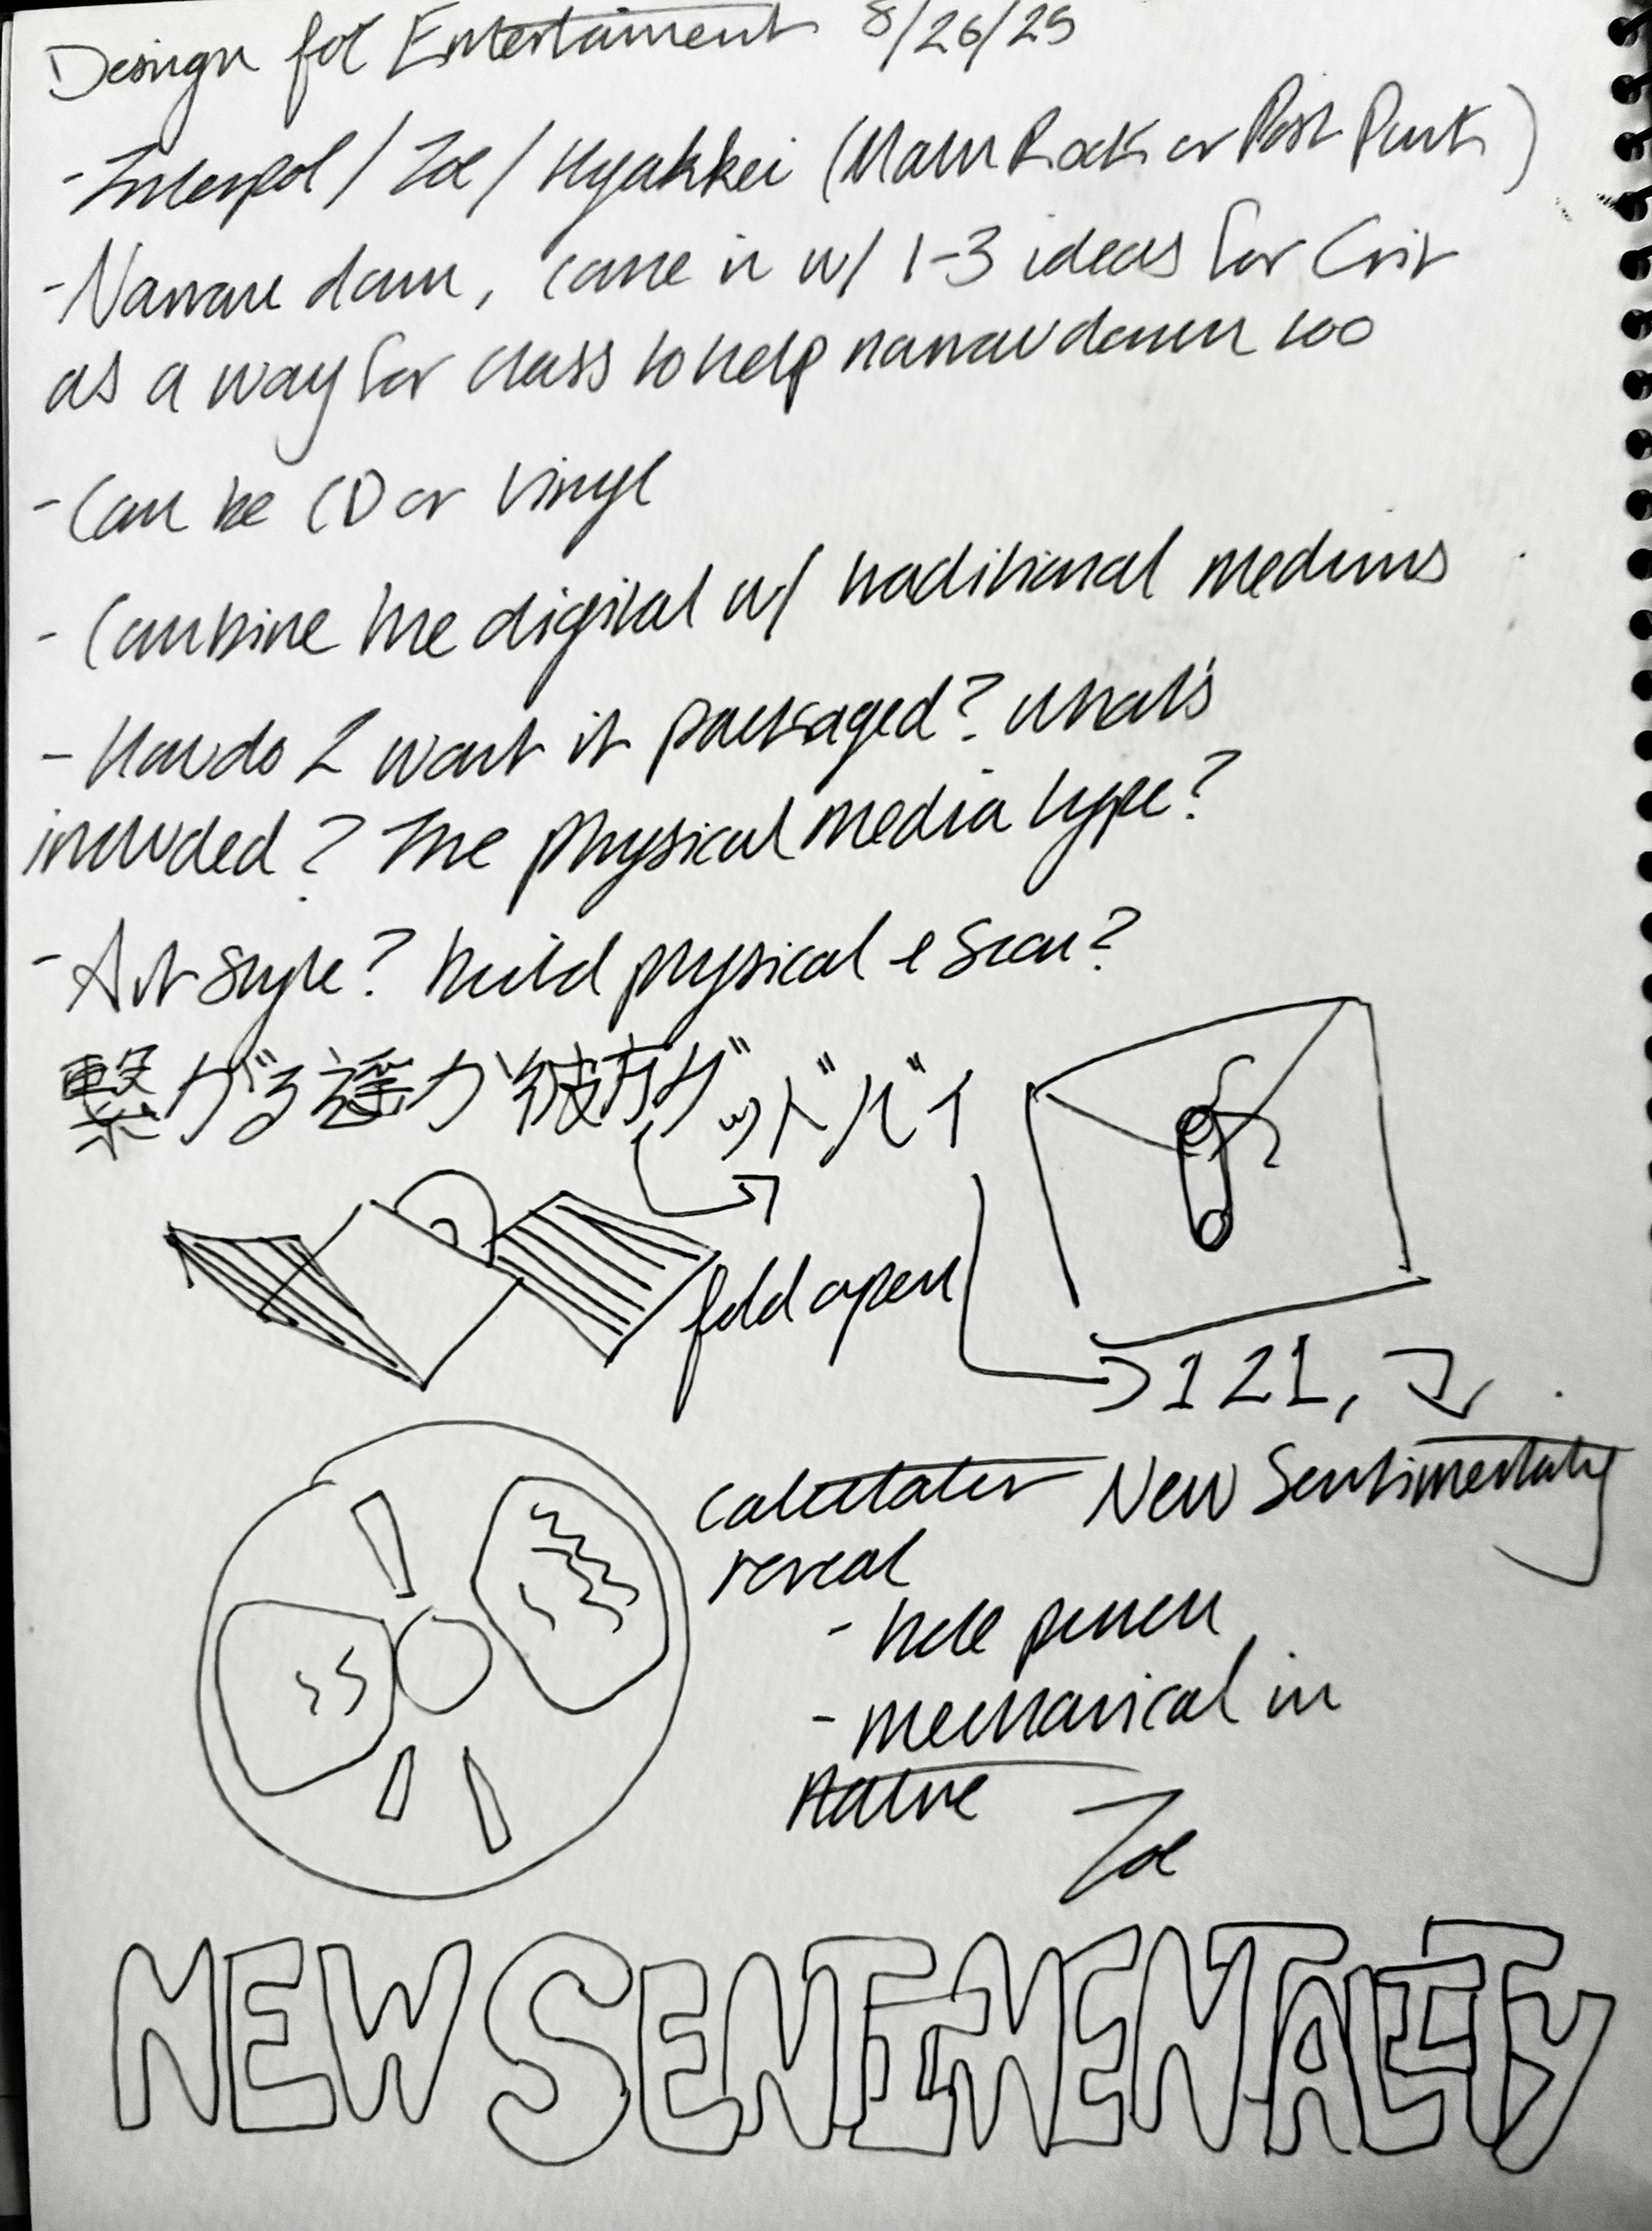 Design for Entertaiment 8/26/25
- Interpol / Zoe / Hyakkei (Math Rock or Post Punk)
- Narrow down, come in w/ 1-3 ideas for Crit
as a way for class to help narrow down too
- Can be CD or Vinyl
- Combine the digital w/ traditional mediums
- How do I want it packaged? What's
included? The physical media type?
- Art Style? Build physical & Scan?
繋がる遥か彼方グッドバイ
fold open
121,
New Sentimentality
reveal
- hole punch
- mechanical in
nature
Zoe
NEW SENTIMENTALITY